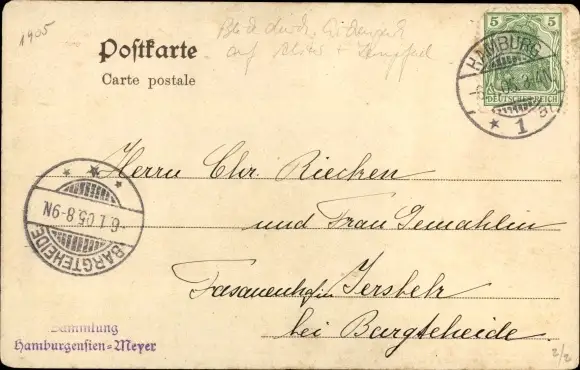 1905
Postkarte
Carte postale
auf
5 5
DEUTSCHES REICH
HAMBURG
* 1
Herrn Chr. Riecken
und Frau Gemahlin
Fasanenhof in Jersbek
bei Bargteheide
BARGTEHEIDE
6.1.05.8-9N
Sammlung
Hamburgensien=Meyer
2/2